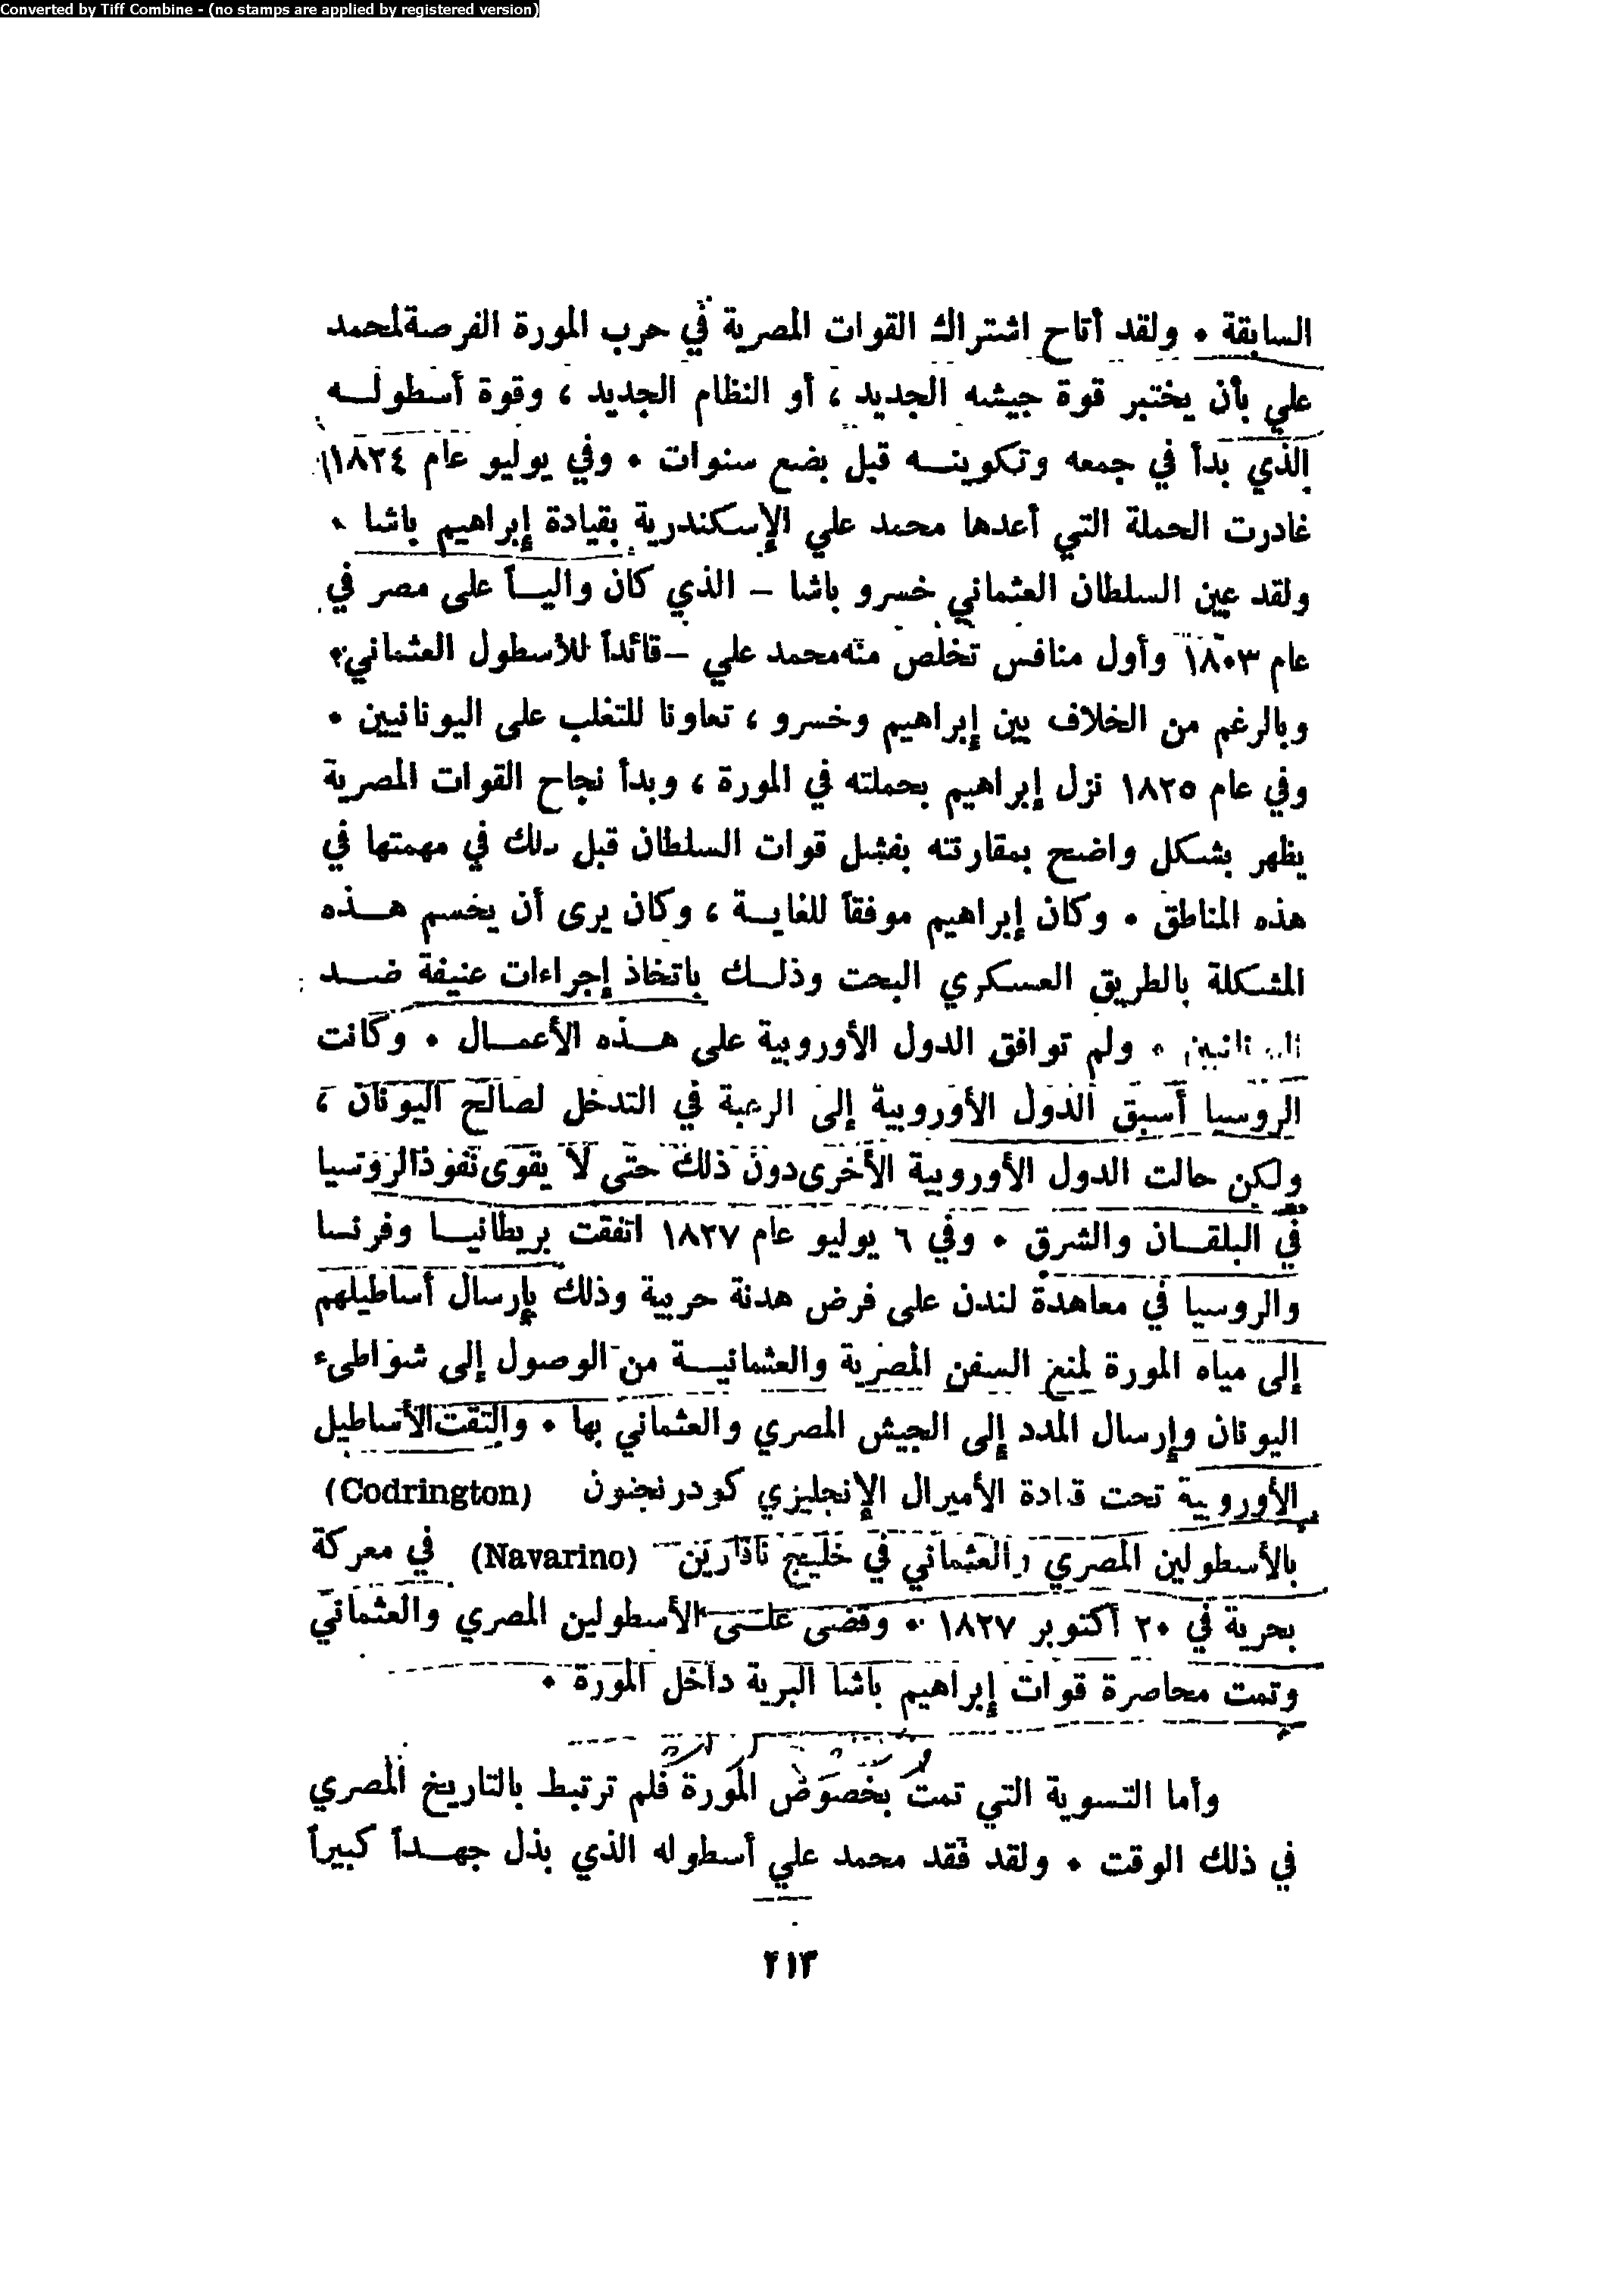 Converted by Tiff Combine - (no stamps are applied by registered version)
السابقة . ولقد أتاح اشتراك القوات المصرية في حرب المورة الفرصة لمحمد
علي بأن يختبر قوة جيشه الجديد ، أو النظام الجديد ، وقوة أسطولــه
الذي بدأ في جمعه وتكوينــه قبل بضع سنوات . وفي يوليو عام ١٨٢٤
غادرت الحملة التي أعدها محمد علي الإسكندرية بقيادة إبراهيم باشا .
ولقد عين السلطان العثماني خسرو باشا – الذي كان واليــاً على مصر في
عام ١٨٠٣ وأول منافس تخلص منه محمد علي – قائداً للأسطول العثماني .
وبالرغم من الخلاف بين إبراهيم وخسرو ، تعاونا للتغلب على اليونانيين .
وفي عام ١٨٢٥ نزل إبراهيم بحملته في المورة ، وبدأ نجاح القوات المصرية
يظهر بشكل واضح بمقارنته بفشل قوات السلطان قبل ذلك في مهمتها في
هذه المناطق . وكان إبراهيم موفقاً للغايــة ، وكان يرى أن يحسم هــذه
المشكلة بالطريق العسكري البحت وذلــك باتخاذ إجراءات عنيفة ضــد
اليونانيين . ولم توافق الدول الأوروبية على هــذه الأعمــال . وكانت
الروسيا أسبق الدول الأوروبية إلى الرغبة في التدخل لصالح اليونان ،
ولكن حالت الدول الأوروبية الأخرى دون ذلك حتى لا يقوى نفوذ الروسيا
في البلقــان والشرق . وفي ٦ يوليو عام ١٨٢٧ اتفقت بريطانيــا وفرنسا
والروسيا في معاهدة لندن على فرض هدنة حربية وذلك بإرسال أساطيلهم
إلى مياه المورة لمنع السفن المصرية والعثمانيــة من الوصول إلى شواطىء
اليونان وإرسال المدد إلى الجيش المصري والعثماني بها . والتقت الأساطيل
الأوروبية تحت قيادة الأميرال الإنجليزي كودرنجتون (Codrington)
بالأسطولين المصري والعثماني في خليج نافارين (Navarino) في معركة
بحرية في ٢٠ أكتوبر ١٨٢٧ . وقضى علــى الأسطولين المصري والعثماني
وتمت محاصرة قوات إبراهيم باشا البرية داخل المورة .
وأما التسوية التي تمت بخصوص المورة فلم ترتبط بالتاريخ المصري
في ذلك الوقت . ولقد فقد محمد علي أسطوله الذي بذل جهــداً كبيراً
٢١٣